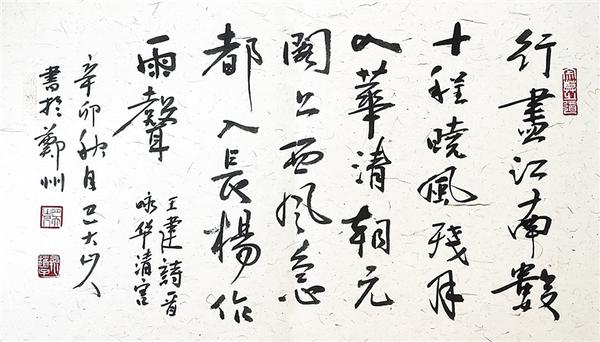 行盡江南數
十程曉風殘月
入華清朝元
閣上西風急
都入長楊作
雨聲
王建詩一首
咏华清宫
辛卯秋月
書於鄭州